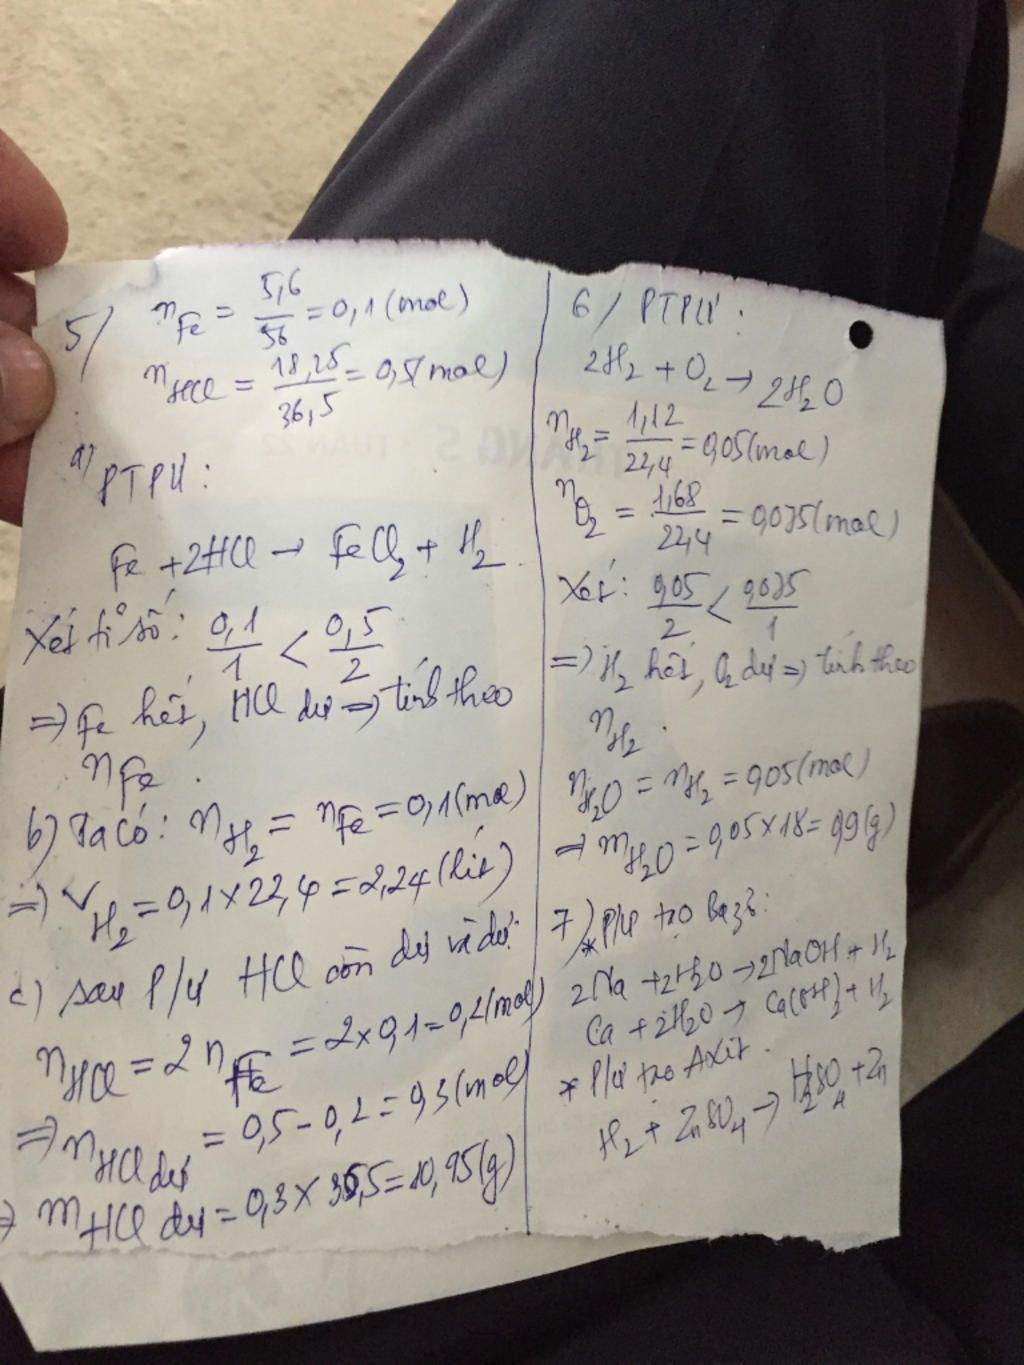 5/ n Fe = 5,6/56 = 0,1 (mol)
n HCl = 18,25/36,5 = 0,5 (mol)
a) PTPƯ:
Fe + 2HCl → FeCl2 + H2
Xét tỉ số: 0,1/1 < 0,5/2
=> Fe hết, HCl dư => tính theo
n Fe.
b) Ta có: n H2 = n Fe = 0,1 (mol)
=> V H2 = 0,1 x 22,4 = 2,24 (lít)
c) sau P/Ư HCl còn dư và dư:
n HCl = 2 n Fe = 2 x 0,1 = 0,2 (mol)
=> n HCl dư = 0,5 - 0,2 = 0,3 (mol)
=> m HCl dư = 0,3 x 36,5 = 10,95 (g)
6/ PTPƯ:
2H2 + O2 → 2H2O
n H2 = 1,12/22,4 = 0,05 (mol)
n O2 = 1,68/22,4 = 0,075 (mol)
Xét: 0,05/2 < 0,075/1
=> H2 hết, O2 dư => tính theo
n H2.
n H2O = n H2 = 0,05 (mol)
=> m H2O = 0,05 x 18 = 0,9 (g)
7) * P/Ư tạo Bazơ:
2Na + 2H2O → 2NaOH + H2
Ca + 2H2O → Ca(OH)2 + H2
* P/Ư tạo Axit.
H2 + ZnSO4 → H2SO4 + Zn